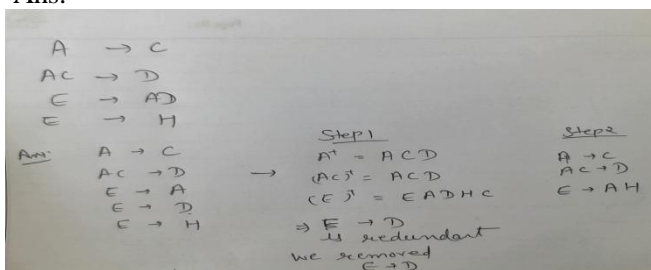 Ans:
A → C
AC → D
E → AD
E → H
Ans: A → C
AC → D
E → A
E → D
E → H
→
Step 1
A⁺ = ACD
(AC)⁺ = ACD
(E)⁺ = EADHC
⇒ E → D
is redundant
we removed
E → D
Step 2
A → C
AC → D
E → AH